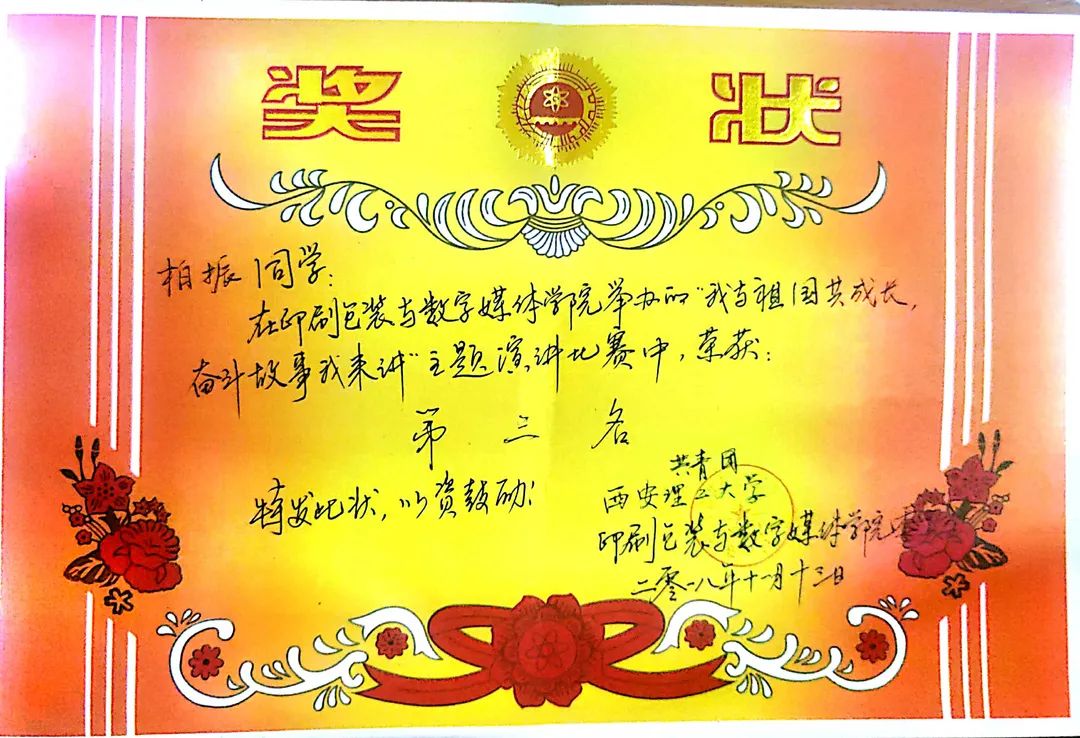 奖状
柏振同学:
在印刷包装与数字媒体学院举办的"我与祖国共成长,
奋斗故事我来讲"主题演讲比赛中,荣获:
第三名
特发此状,以资鼓励!
共青团
西安理工大学
印刷包装与数字媒体学院委
二零一八年十一月十三日